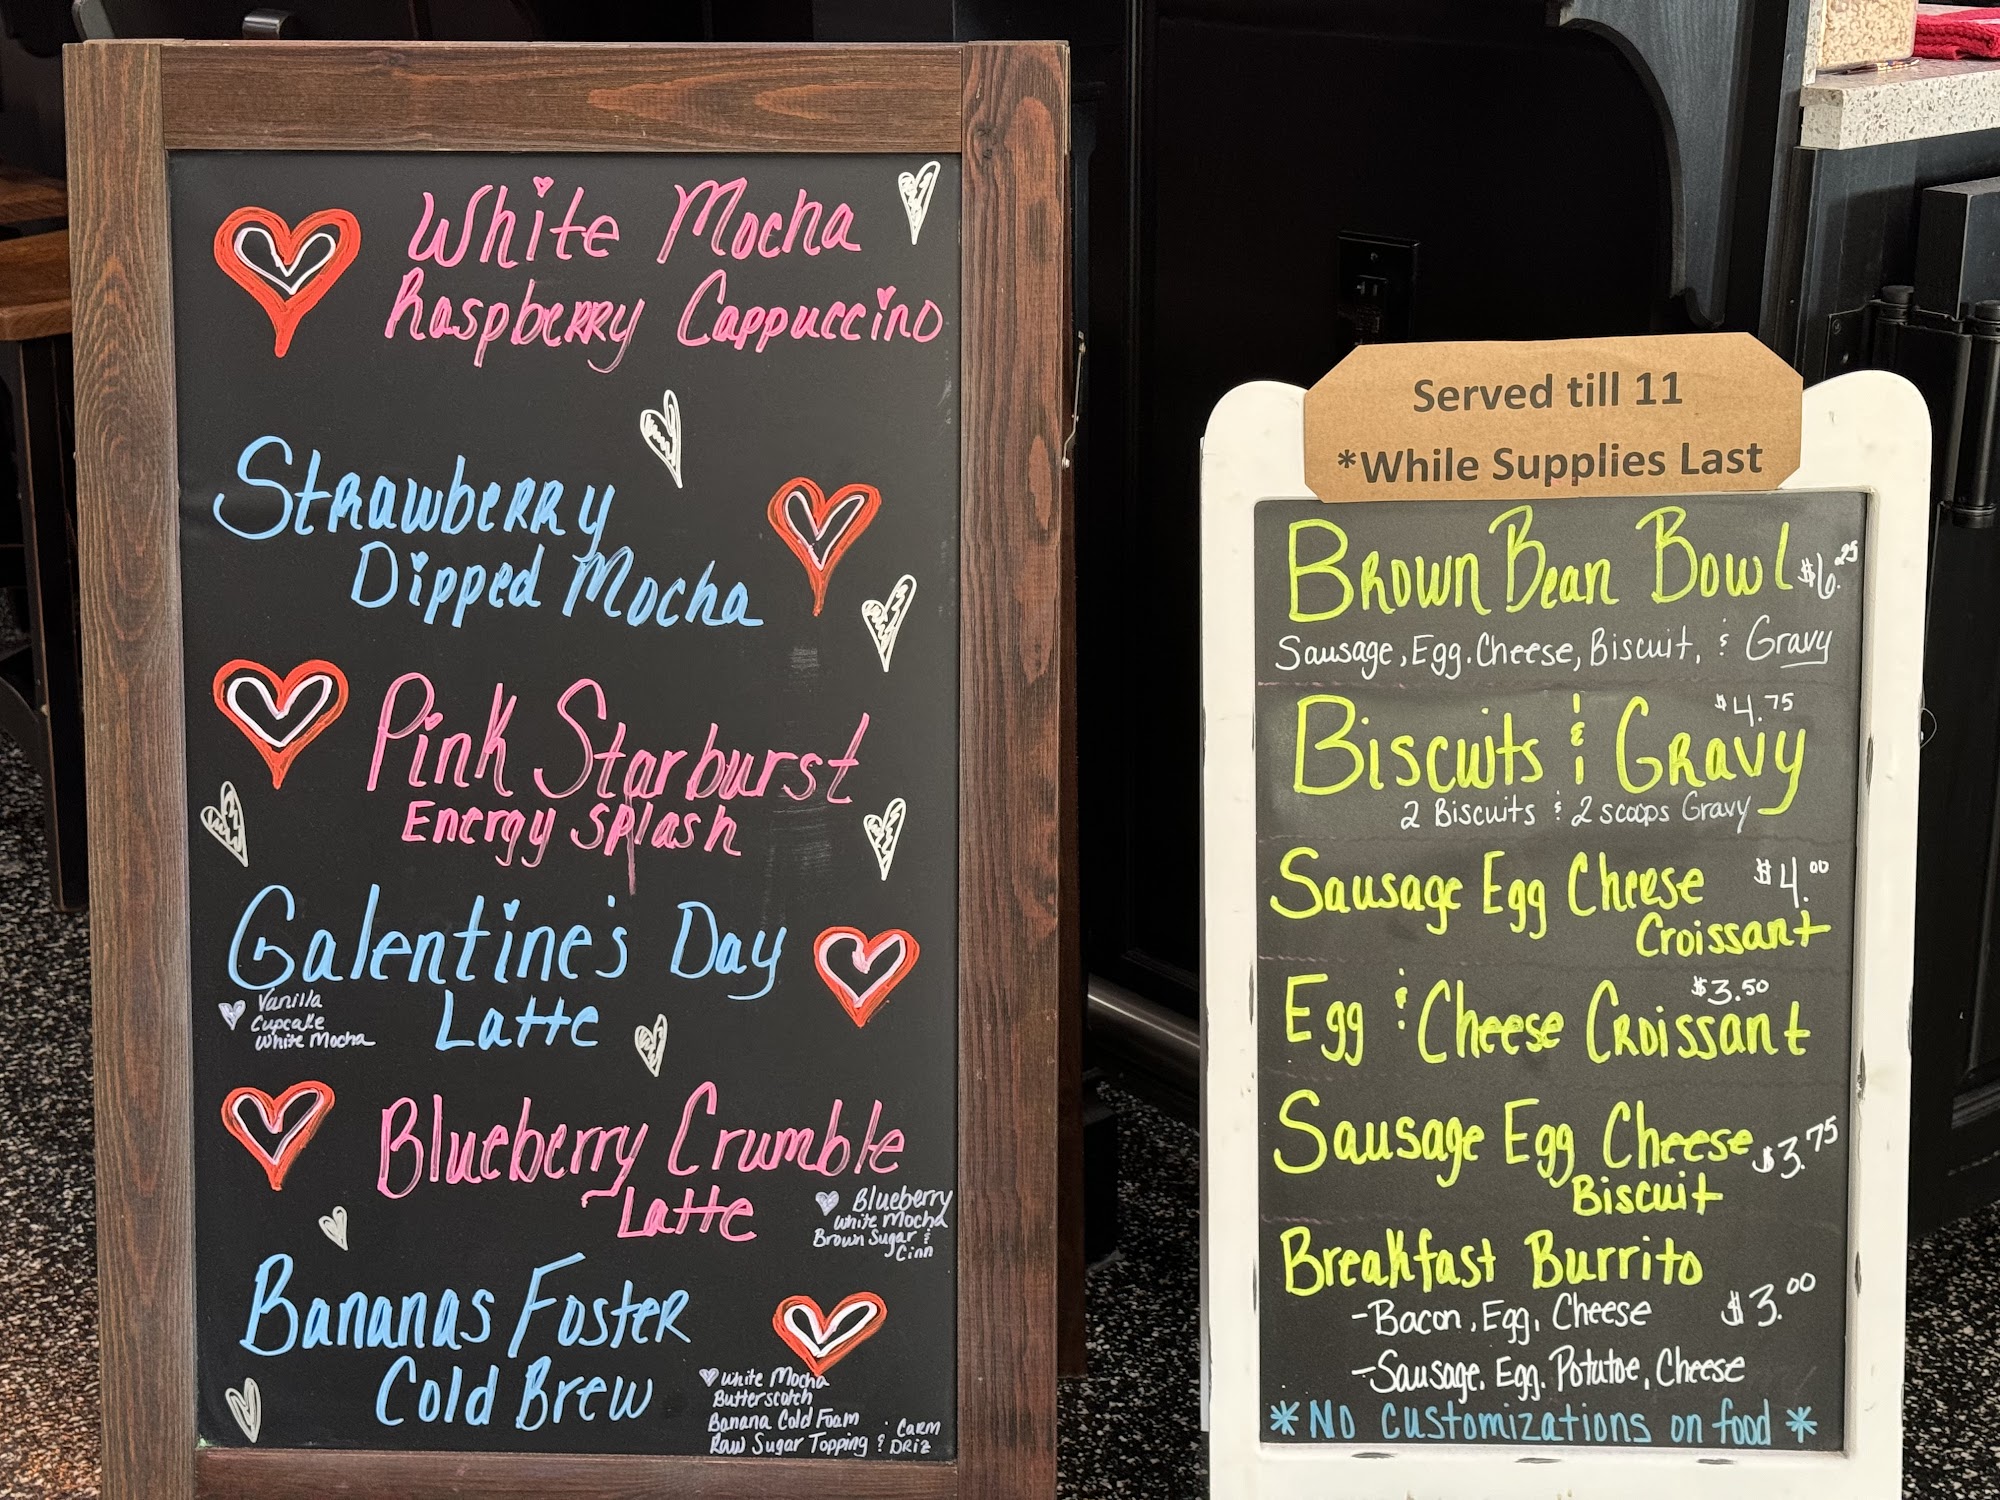 White Mocha
Raspberry Cappuccino
Strawberry
Dipped Mocha
Pink Starburst
Energy Splash
Galentine's Day
Latte
Vanilla
Cupcake
White Mocha
Blueberry Crumble
Latte
Blueberry
White Mocha
Brown Sugar &
Cinn
Bananas Foster
Cold Brew
White Mocha
Butterscotch
Banana Cold Foam
Raw Sugar Topping & Carm
Driz
Served till 11
*While Supplies Last
Brown Bean Bowl $6.25
Sausage, Egg. Cheese, Biscuit, & Gravy
$4.75
Biscuits & Gravy
2 Biscuits & 2 scoops Gravy
Sausage Egg Cheese $4.00
Croissant
$3.50
Egg & Cheese Croissant
Sausage Egg Cheese $3.75
Biscuit
Breakfast Burrito
-Bacon, Egg, Cheese $3.00
-Sausage, Egg. Potatoe, Cheese
*No customizations on food*